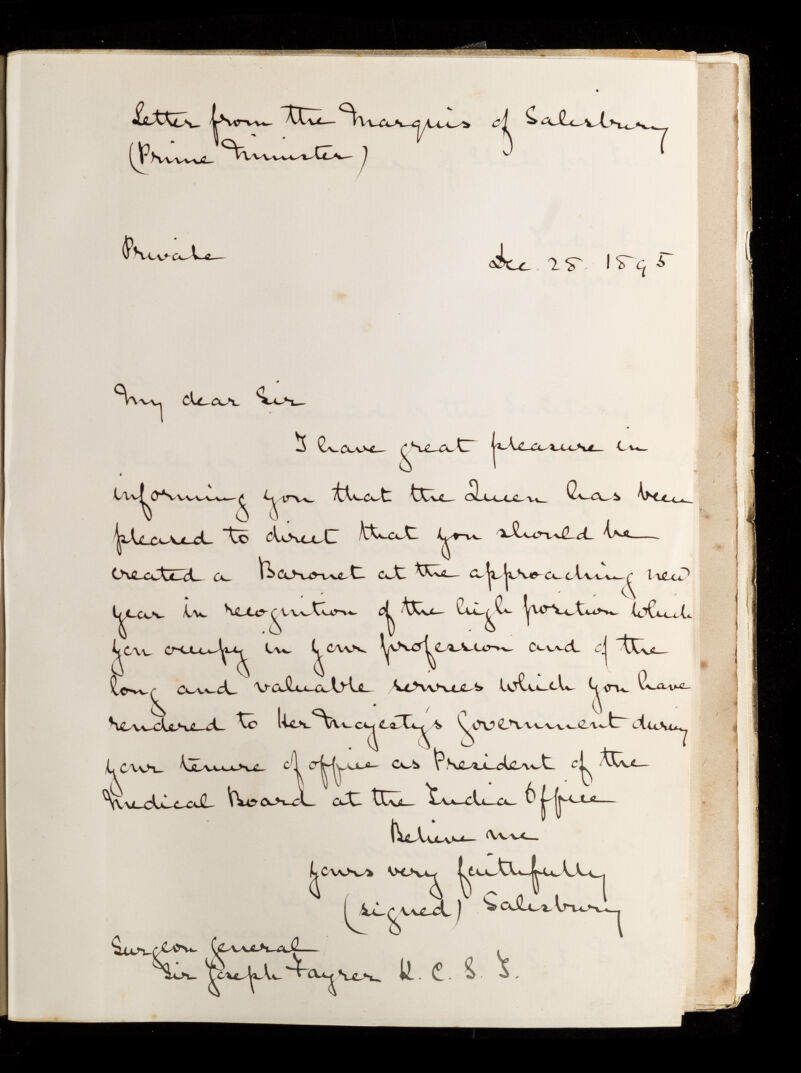 Letter from the Marquis of Salisbury
(Prime Minister)
Private
Dec. 28. 1895
My dear Sir
I have great pleasure in
informing you that the Queen has been
pleased to direct that you should be
created a Baronet at the approaching new
year in recognition of the high position which
you occupy in your profession and of the
long and valuable services which you have
rendered to Her Majesty's Government during
your tenure of office as President of the
Medical Board at the India Office
Believe me
yours very faithfully
(signed) Salisbury
Surgeon General
Sir Joseph Fayrer K. C. S. I.